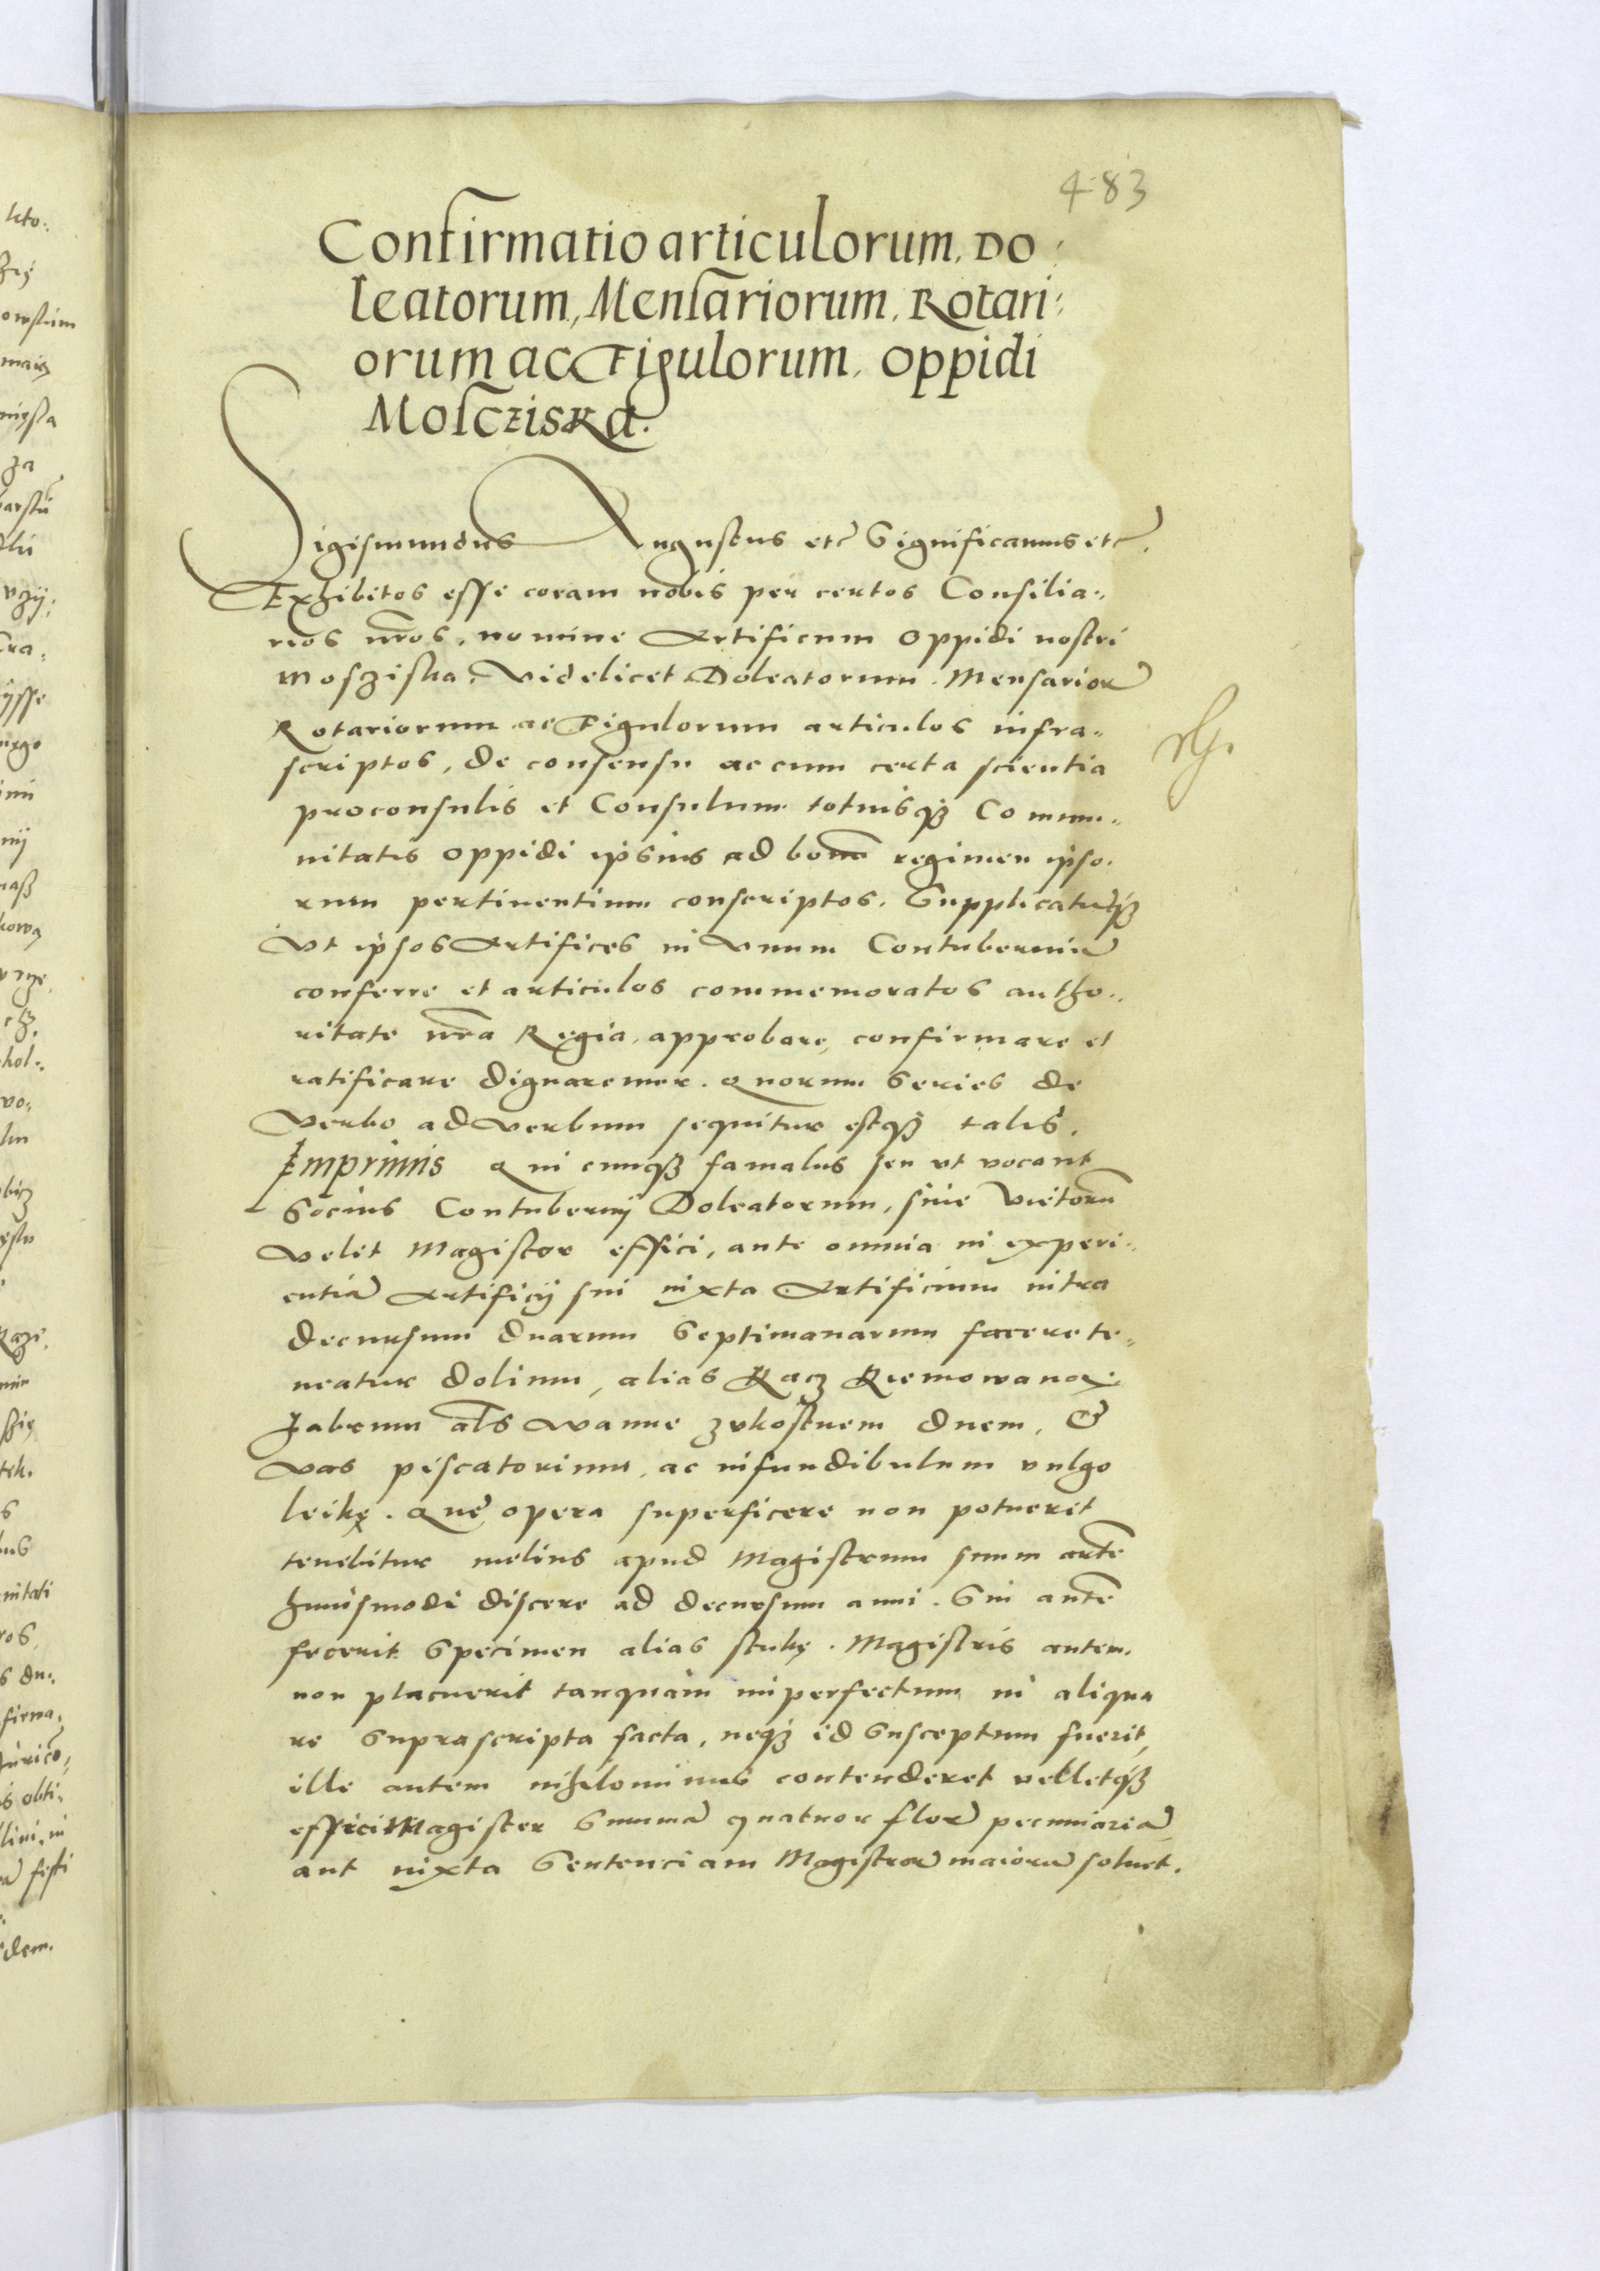 483
Confirmatio articulorum, Do
leatorum, Mensariorum, Rotari:
orum ac Figulorum, Oppidi
Moscziska.
Sigismundus Augustus etc Significamus etc.
Exhibitos esse coram nobis per certos Consilia:
rios nros, nomine Artificum oppidi nostri
Mosziska, Videlicet Doleatorum, Mensarior
Rotariorum ac Figulorum articulos infra:
scriptos, de consensu ac cum certa scientia
proconsulis et Consulum totiusq3 Commu:
nitatis oppidi ipsius ad bonu regimen ipso:
rum pertinentium conscriptos. Supplicatuq3
Vt ipsos Artifices in Vnum Contuberniu
conferre et articulos commemoratos autho:
ritate nra Regia, approbare, confirmare et
ratificare dignaremur. quorum series de
Verbo ad Verbum sequitur estq3 talis.
Imprimis Quicunq3 famulus seu vt vocant
Socius Contubernij Doleatorum, siue Vietoru
Velit Magister effici, ante omnia in experi:
entia Artificij sui iuxta Artificium intra
decursum duarum Septimanarum facere te:
neatur dolium, alias Kacz Riemowana,
Jabrum als Wanne z vkostnem dnem, &
Vas piscatorium, ac infundibulum vulgo
leikę. Que opera si perficere non potuerit
tenebitur melius apud Magistrum suum arte
huiusmodi discere ad decursum anni. Sin aute
fecerit Specimen alias stukę. Magistris autem
non placuerit tanquam imperfectum in aliqua
re Suprascripta facta, neq3 id Susceptum fuerit,
ille autem nihilominus contenderet velletq3
effici Magister Summa quatuor flor pecuniaria
aut iuxta Sentenciam Magistror maioru soluet.